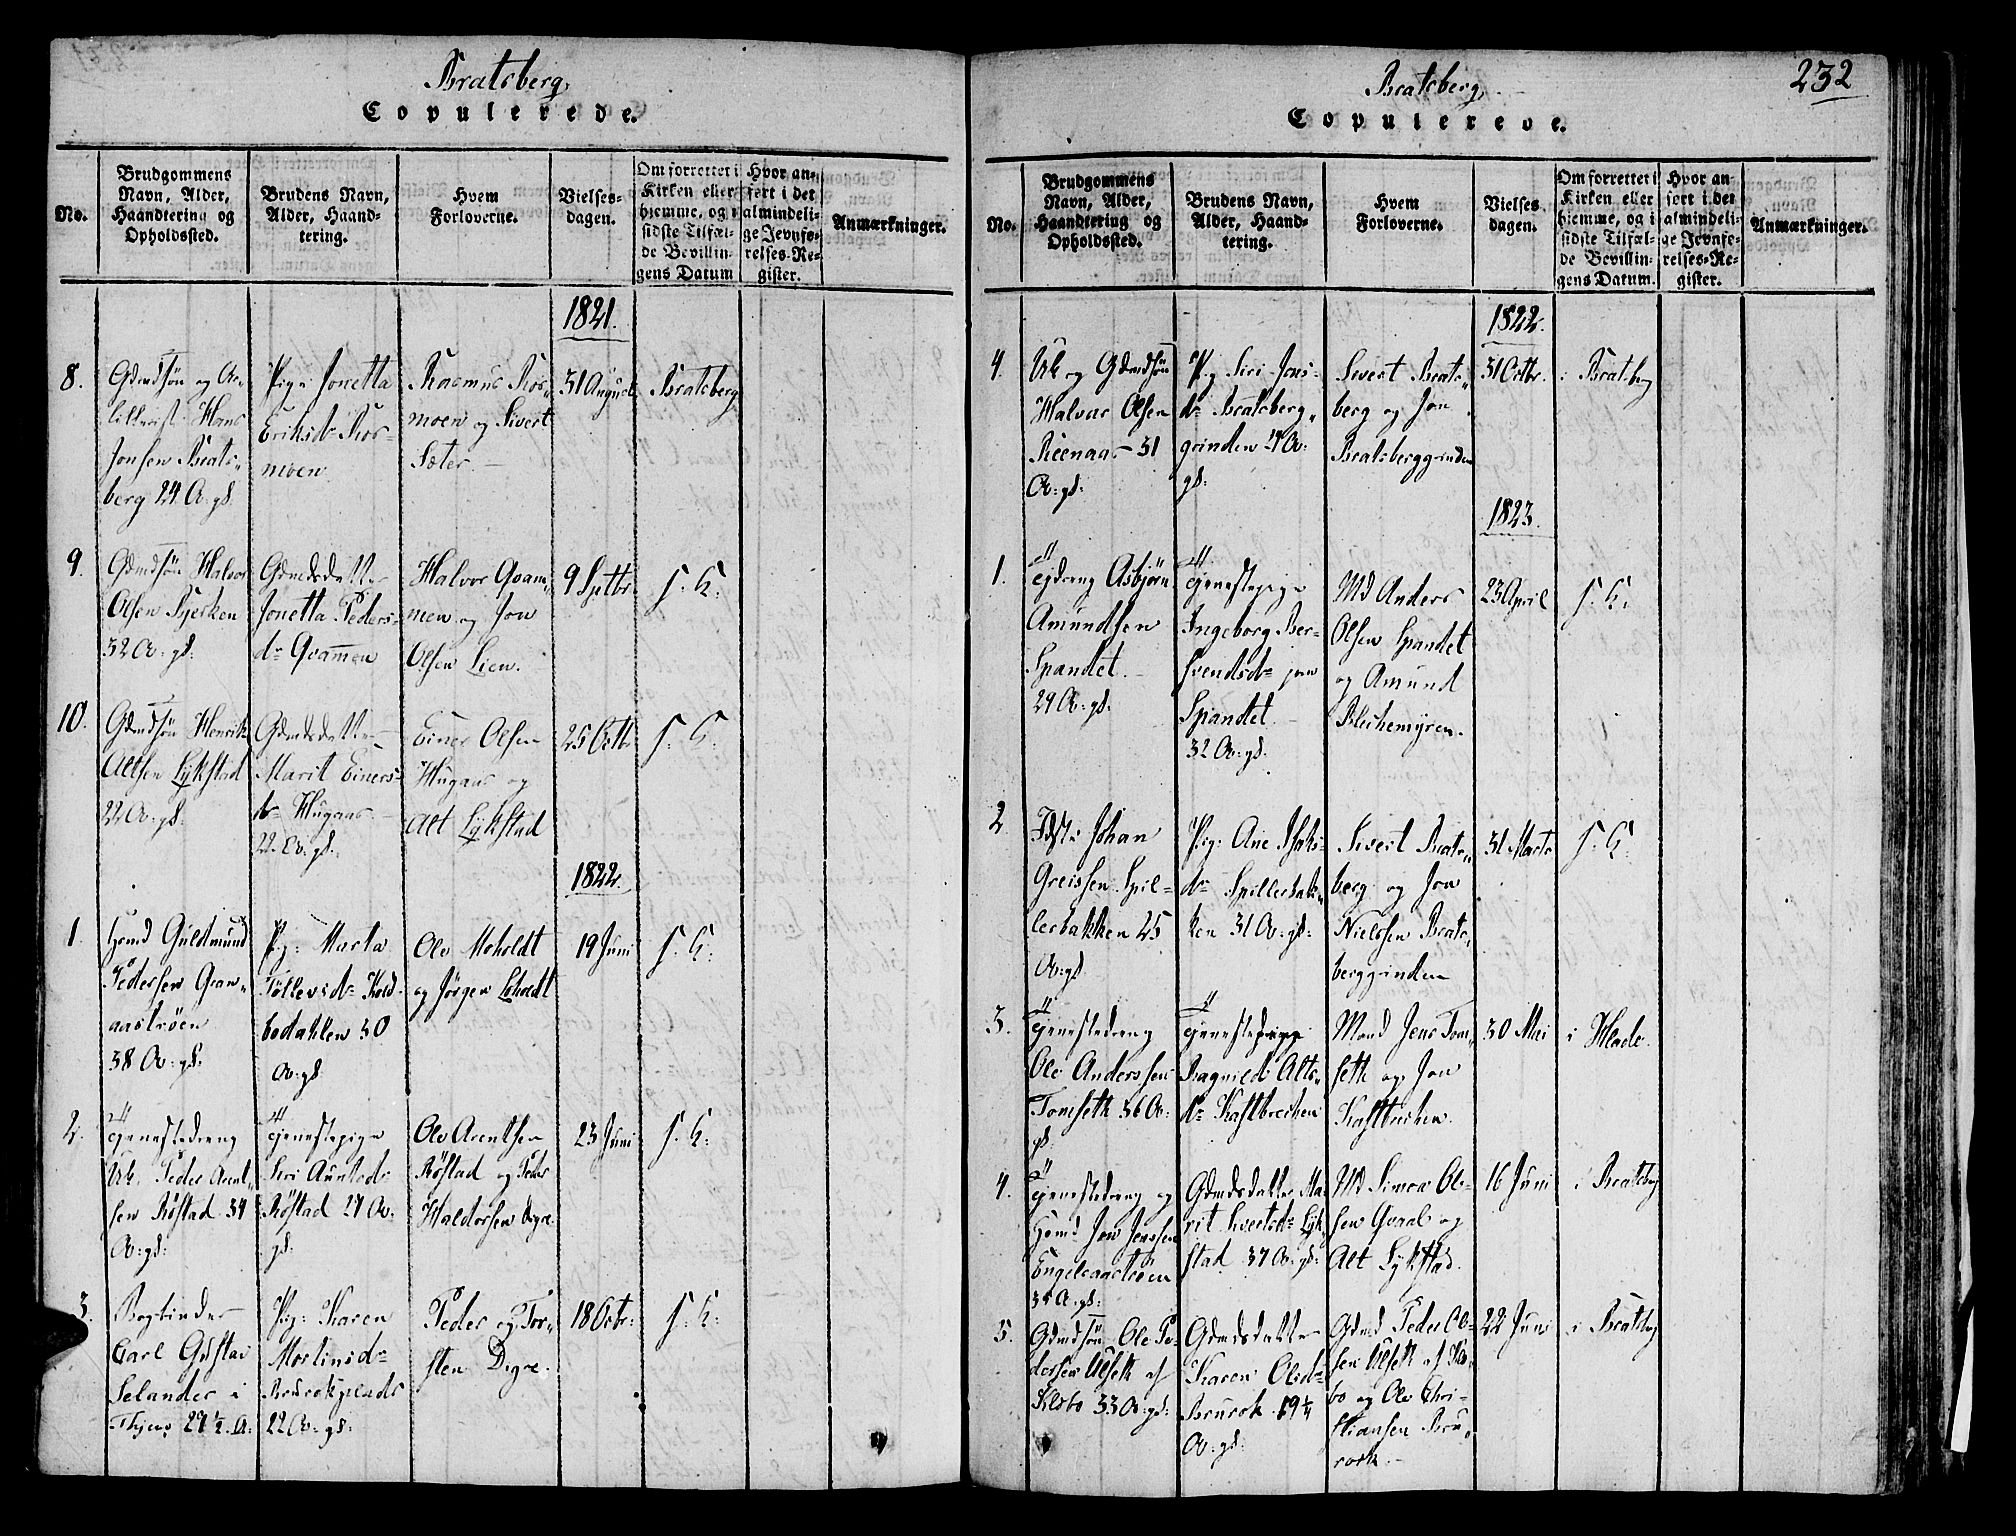 Bratsberg.
Copulerede.
No.
Brudgommens
Navn, Alder,
Haandtering og
Opholdssted.
Brudens Navn,
Alder, Haand-
tering.
Hvem
Forloverne.
Vielses-
dagen.
Om forrettet i
Kirken eller
hjemme, og i
sidste Tilfæl-
de Bevillin-
gens Datum
Hvor an-
ført i det
almindeli-
ge Jevnfø-
relses-Re-
gister.
Anmærkninger.
1821.
8.
Hans
Jonsen Brats-
berg 24 A. gl.
Pig: Jonetta
Eriksd: Ros-
moen
Rasmus Ros-
moen og Sivert
Sæter.
31 August
Bratsberg
9.
Gdmdsøn Halvor
Olsen
32 A: gl:
Gdmdsdatter
Jonetta Peders-
dr Qvammen
Halvor Qvam-
men og Jon
Olsen Lien.
9 Sptbr
S. K:
10.
Gdmdsøn Henrik
Altsen Lykstad
22 A: gl:
Gdmdsdatter
Marit Einers-
dr Hugaas
22 A: gl:
Einer Olsen
Hugaas og
Alt Lykstad
25 Octb
S: K:
1822.
1.
Guldmund
Pedersen Gran-
aastrøen
38 A: gl:
Pig: Marta
Tollevsdr
30
A: gl
Ole Moholdt
og Jørgen Loholdt
19 Juni
S. K:
2.
Tjenestedreng
Peder Arnt-
sen Røstad 34
A: gl:
Tjenestepige
Siri
Røstad 24 A:
gl:
Ole Arentsen
Røstad og Peder
Haldorsen Digre
23 Juni
S. K:
3.
Bogbinder
Carl Gustav
Selander i
Thjem 29 1/2 A:
Pig: Karen
Mortinsdr
22 A: gl:
Peder og Tor-
sten Digre.
18 Octbr:
S: K:
Bratsberg,
232
Copulerede.
No.
Brudgommens
Navn, Alder,
Haandtering og
Opholdssted.
Brudens Navn,
Alder, Haand-
tering.
Hvem
Forloverne.
Vielses
dagen.
Om forrettet i
Kirken eller
hjemme, og i
sidste Tilfæl-
de Bevillin-
gens Datum.
Hvor an-
ført i det
almindeli-
ge Jevnfø-
relses-Re-
gister.
Anmærkninger.
1822.
4.
Uk og Gdmdsøn
Halvar Olsen
Reenaas 31
A: gl:
Pig Siri Jons-
dr Bratsberg-
grinden 24 A:
gl:
Sivert Brats-
berg og Jon
Bratsberggrinden
31 Octbr.
i Bratsberg
1823.
1.
Tjdreng Asbjørn
Amundsen
Spandet.
29 A: gl.
Tjenestepige
Ingeborg Ber-
svendsdr
Spandet.
32 A: gl.
Md Anders
Olsen Spandet
og Amund
Blekemyren.
23 April
S. K:
2
Johan
Greissen Spil-
lerbakken 25
A: gl
Pig: Ane
dr Spillerbak-
ken 31 A: gl:
Sivert Brats-
berg og Jon
Nielssen Brats-
berggrinden
31 Marts
S. K:
3.
Tjenestedreng
Ole Anderssen
Tomseth 36 A:
gl.
Tjenestepige
Ragnild Alts-
dr Kastbrekken
Mand Jens Tom-
seth og Jon
Kastbrekken.
30 Mai
i Hlade.
4.
Tjenestedreng og
Jon Jenssen
34 A: gl:
Gdmdsdatter Ma-
rit Svertsdr Lyk-
stad 37 A: gl:
Md Simon Ol-
sen Qvaal og
Alt Lykstad.
16 Juni
i Bratsberg
5.
Gdmdsøn Ole Pe-
dersen Ulseth af
Klæbo 33 A: gl:
Gdmdsdatter
Karen Olsdr
Brurok 19 1/4
A: gl:
Gdmd Peder Ol-
sen Ulseth af Klæ-
bo og Ole Chri-
stiansen Bru-
rok.
22 Juni
i Bratsberg